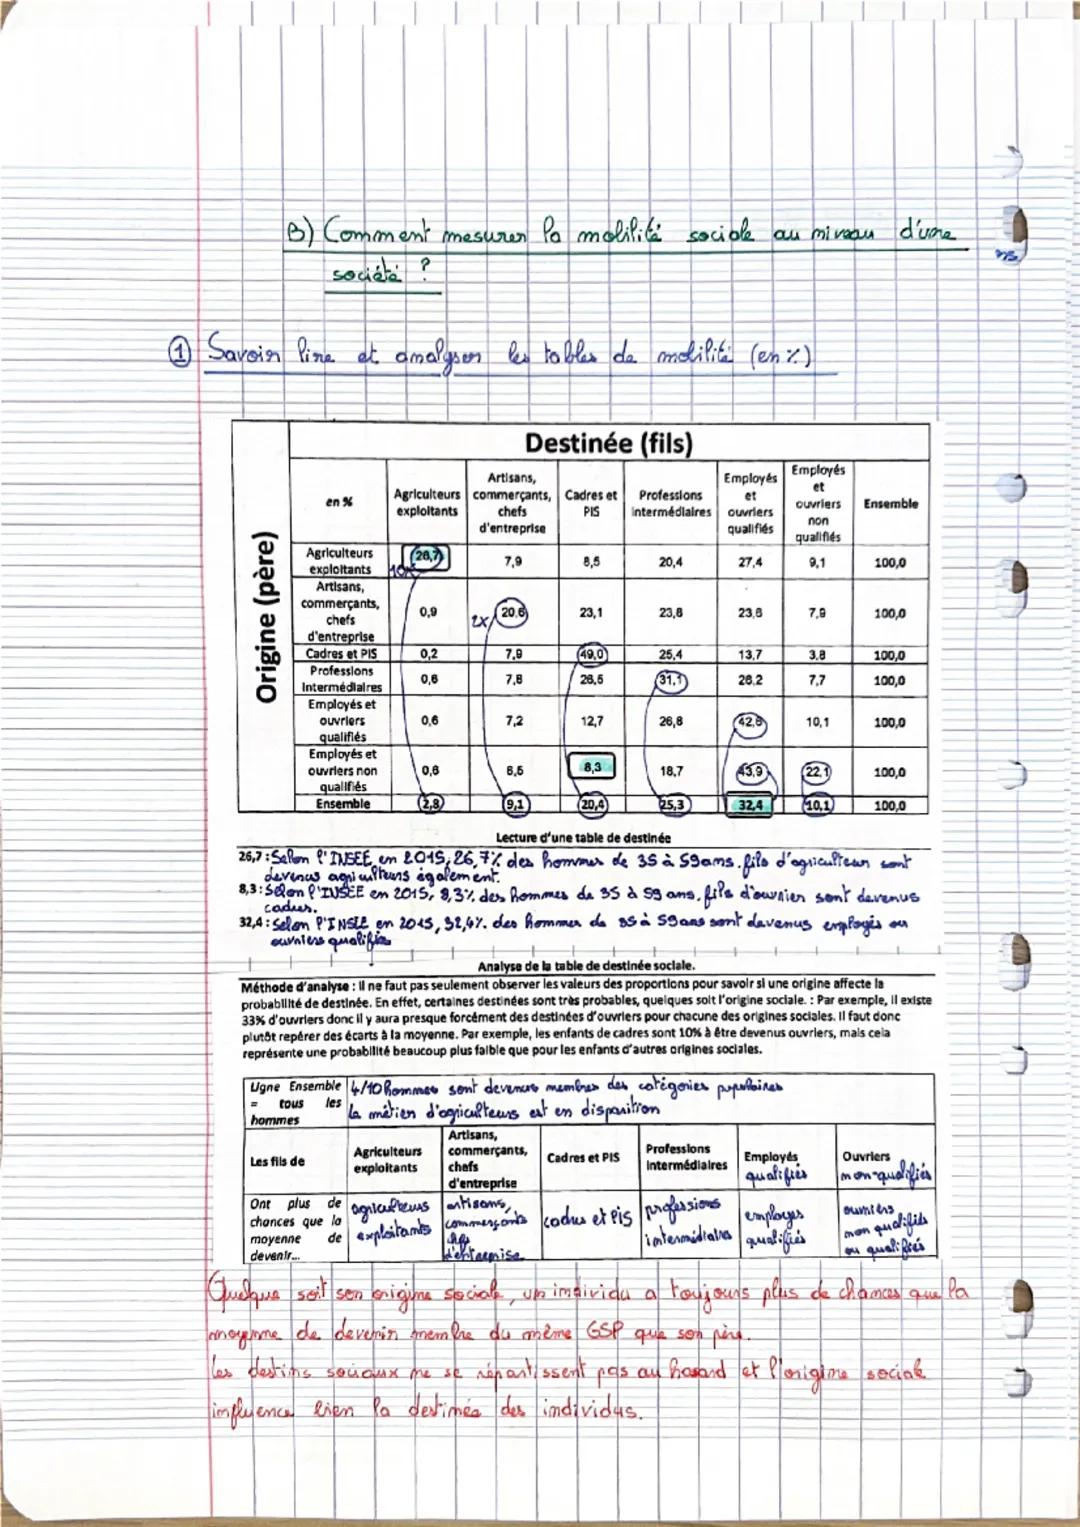 B) Comment mesurer la mobilité sociale au niveau d'une
société ?
① Savoir lire et analyser les tables de mobilité (en %)
Destinée (fils)
Origine (père)
en % Agriculteurs exploitants Artisans, commerçants, chefs d'entreprise Cadres et PIS Professions intermédiaires Employés et ouvriers qualifiés Employés et ouvriers non qualifiés Ensemble
Agriculteurs exploitants 26,7 7,9 8,5 20,4 27,4 9,1 100,0
10x
Artisans, commerçants, chefs d'entreprise 0,9 20,6 23,1 23,8 23,6 7,9 100,0
2x
Cadres et PIS 0,2 7,9 49,0 25,4 13,7 3,8 100,0
Professions intermédiaires 0,6 7,8 26,5 31,1 26,2 7,7 100,0
Employés et ouvriers qualifiés 0,6 7,2 12,7 26,8 42,6 10,1 100,0
Employés et ouvriers non qualifiés 0,6 6,5 8,3 18,7 43,9 22,1 100,0
Ensemble 2,8 9,1 20,4 25,3 32,4 10,1 100,0
Lecture d'une table de destinée
26,7 : Selon l'INSEE, en 2015, 26,7% des hommes de 35 à 59ans, fils d'agriculteurs sont
devenus agriculteurs également.
8,3 : Selon l'INSEE en 2015, 8,3% des hommes de 35 à 59 ans, fils d'ouvrier sont devenus
cadres.
32,4 : Selon l'INSEE en 2015, 32,4% des hommes de 35 à 59ans sont devenus employés ou
ouvriers qualifiés
Analyse de la table de destinée sociale.
Méthode d'analyse : Il ne faut pas seulement observer les valeurs des proportions pour savoir si une origine affecte la
probabilité de destinée. En effet, certaines destinées sont très probables, quelques soit l'origine sociale. : Par exemple, il existe
33% d'ouvriers donc il y aura presque forcément des destinées d'ouvriers pour chacune des origines sociales. Il faut donc
plutôt repérer des écarts à la moyenne. Par exemple, les enfants de cadres sont 10% à être devenus ouvriers, mais cela
représente une probabilité beaucoup plus faible que pour les enfants d'autres origines sociales.
Ligne Ensemble = tous les hommes
4/10 hommes sont devenus membres des catégories populaires
la métier d'agriculteurs est en disparition
Les fils de Agriculteurs exploitants Artisans, commerçants, chefs d'entreprise Cadres et PIS Professions intermédiaires Employés qualifiés Ouvriers non-qualifiés
Ont plus de chances que la moyenne de devenir... agriculteurs exploitants artisans, commerçants chefs d'entreprise cadres et PIS professions intermédiaires employés qualifiés ouvriers non qualifiés ou qualifiés
Quelque soit son origine sociale, un individu a toujours plus de chances que la
moyenne de devenir membre du même GSP que son père.
Les destins sociaux ne se répartissent pas au hasard et l'origine sociale
influence bien la destinée des individus.